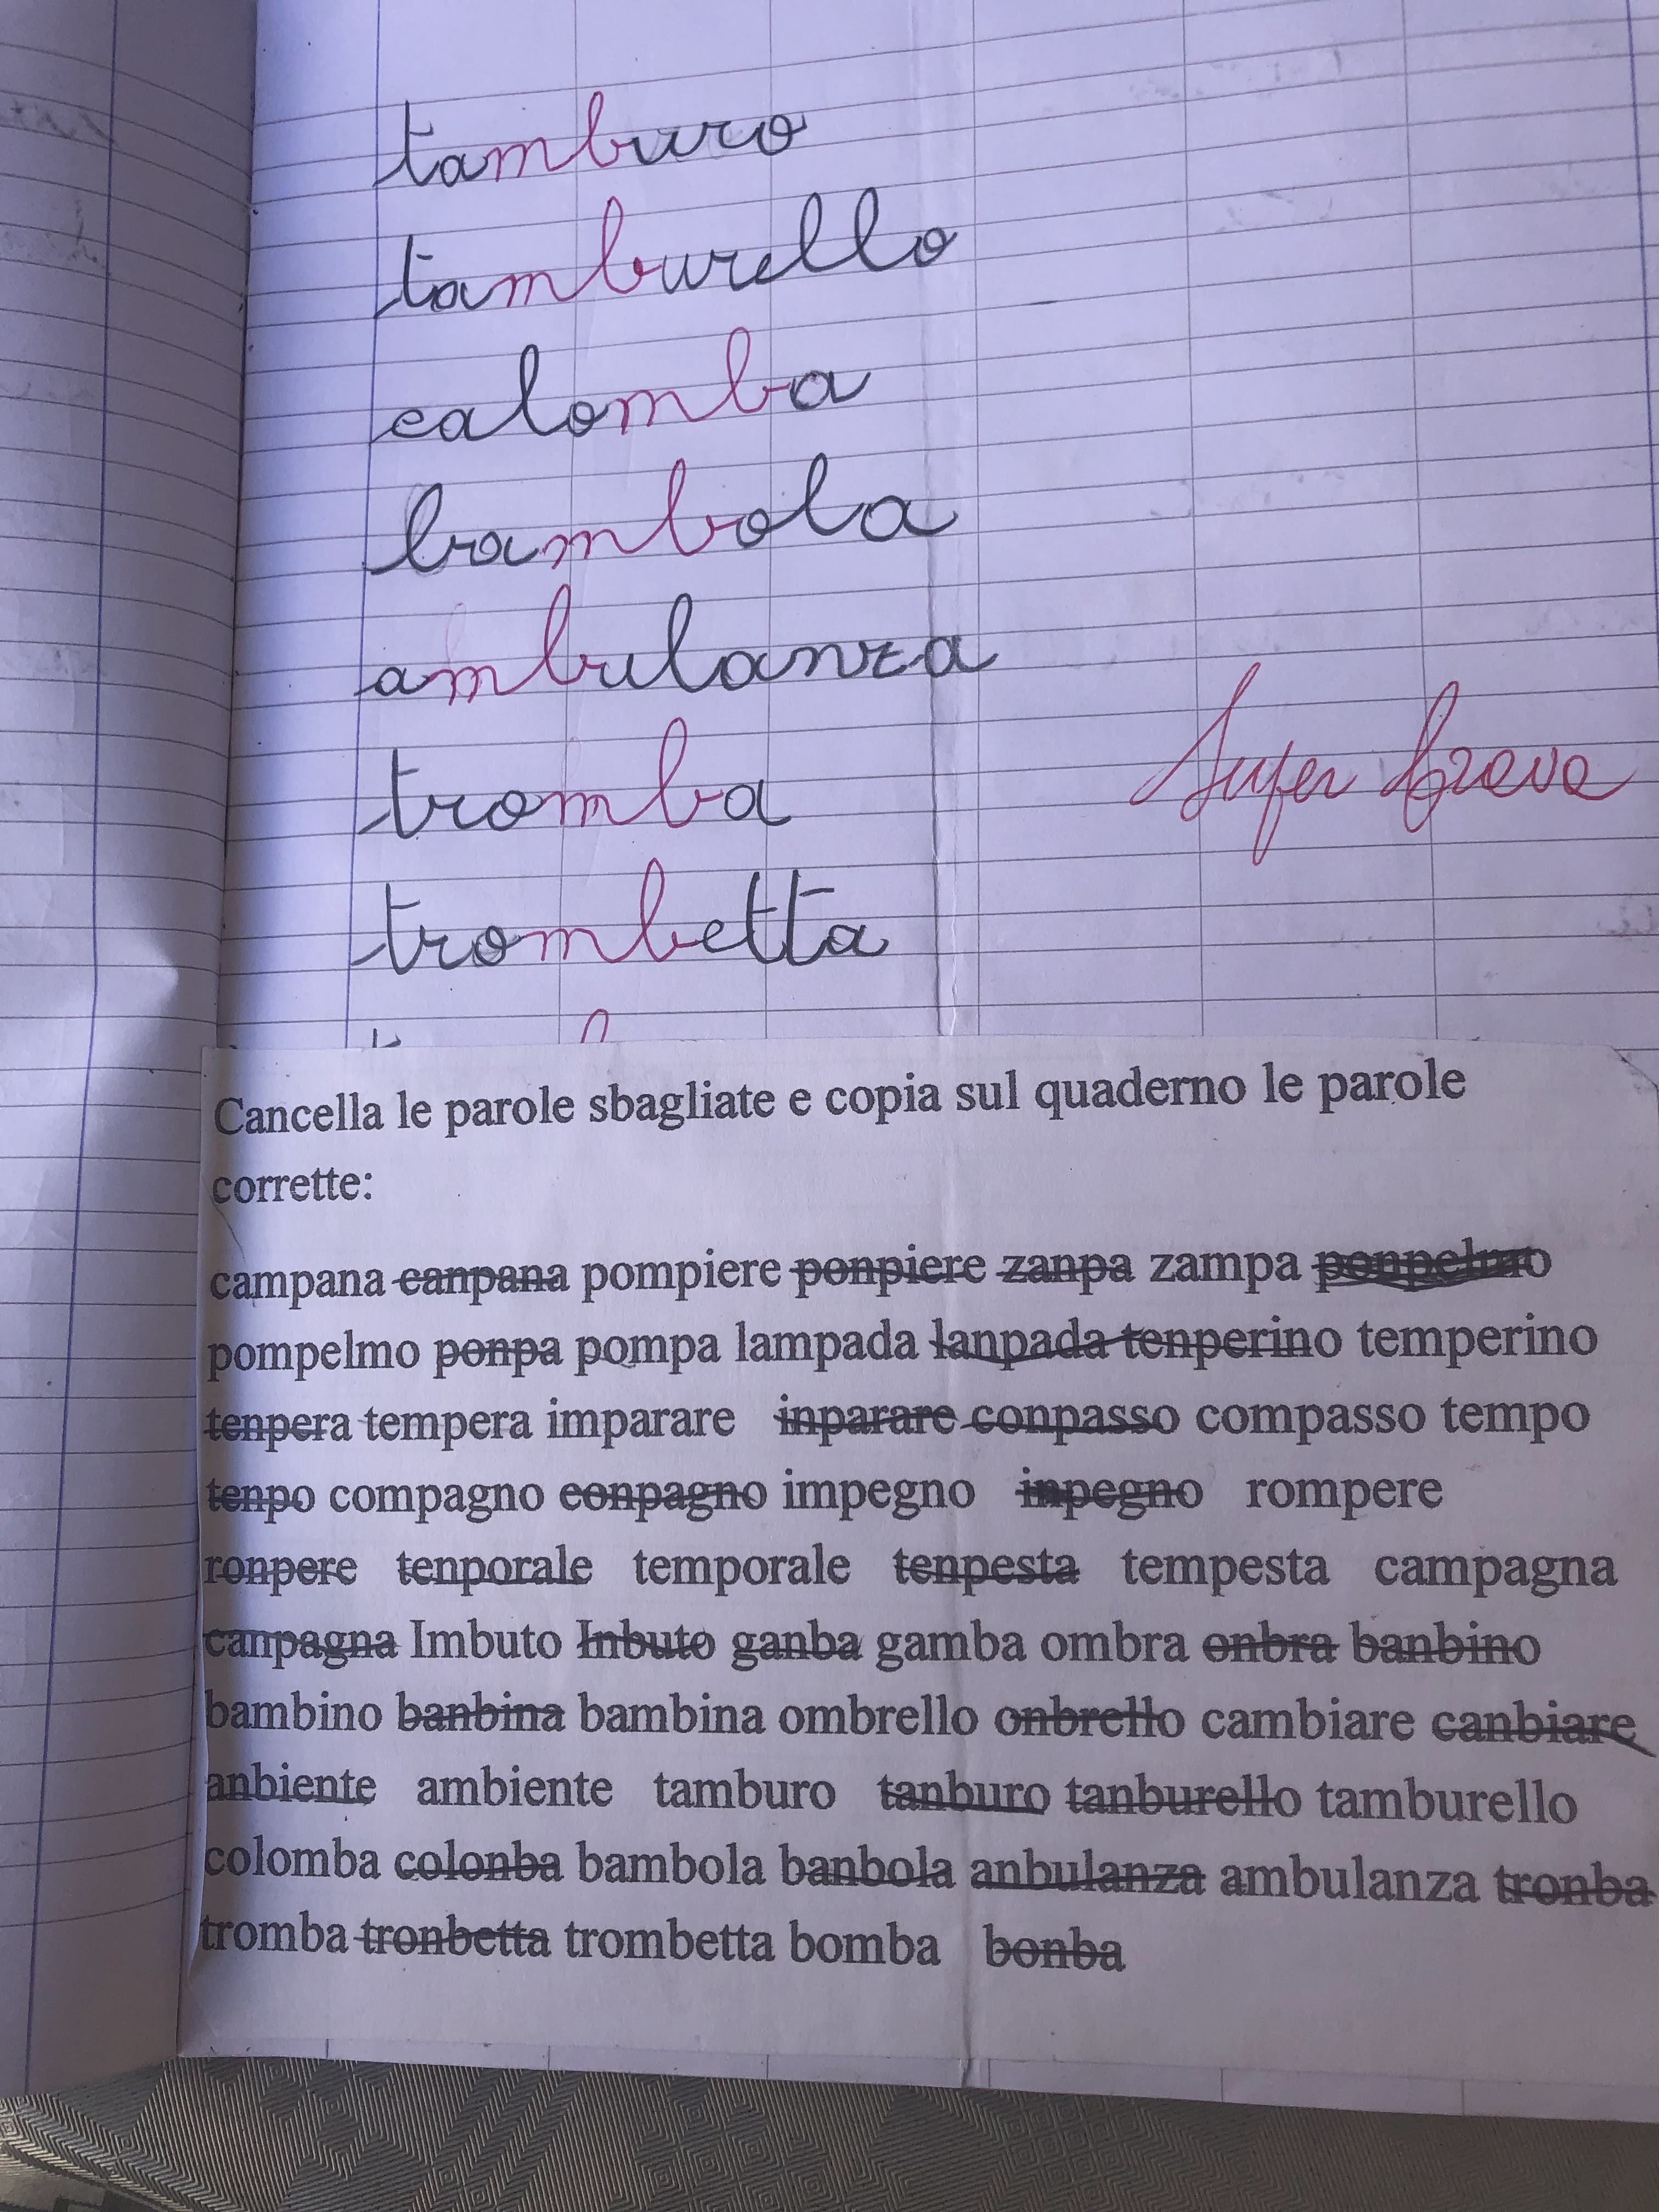 tamburo
tamburello
calomba
bambola
ambulanza
Super brava
tromba
trombetta
Cancella le parole sbagliate e copia sul quaderno le parole
corrette:
campana canpana pompiere ponpiere zanpa zampa ponpelmo
pompelmo ponpa pompa lampada lanpada tenperino temperino
tenpera tempera imparare inparare conpasso compasso tempo
tenpo compagno conpagno impegno inpegno rompere
ronpere tenporale temporale tenpesta tempesta campagna
canpagna Imbuto Inbuto ganba gamba ombra onbra banbino
bambino banbina bambina ombrello onbrello cambiare canbiare
anbiente ambiente tamburo tanburo tanburello tamburello
colomba colonba bambola banbola anbulanza ambulanza tronba
tromba tronbetta trombetta bomba bonba